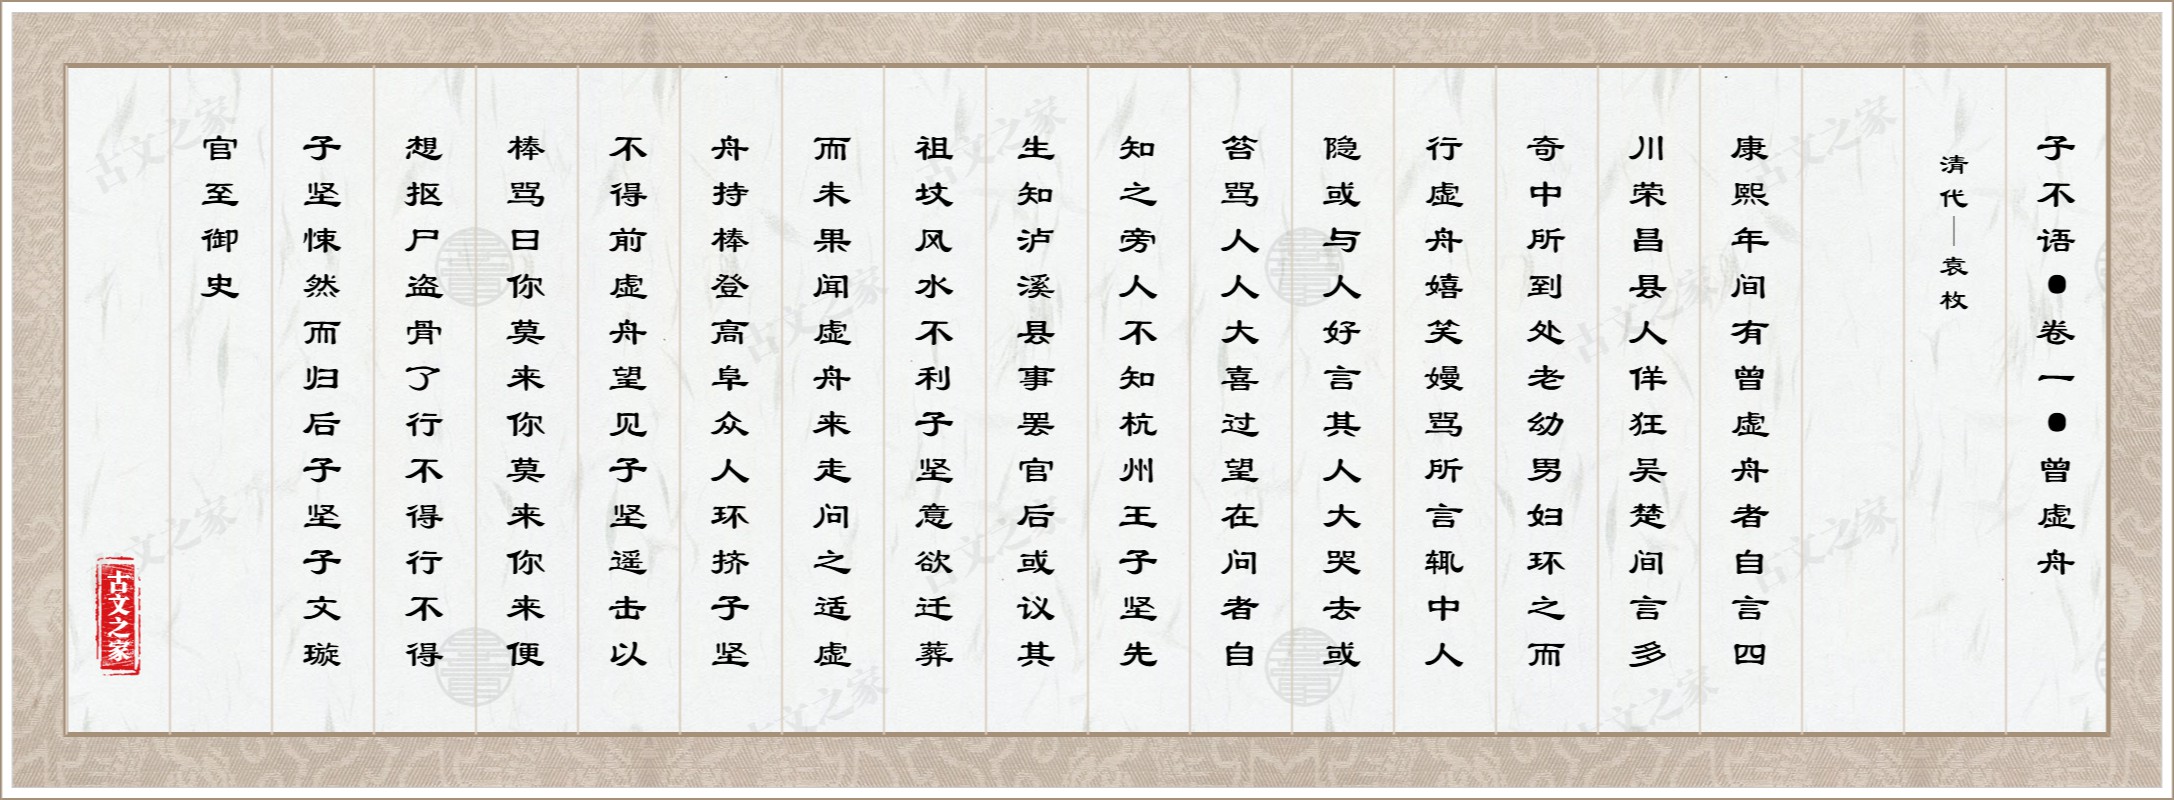 子不语●卷一●曾虚舟
清代｜袁枚
康熙年间有曾虚舟者自言四
川荣昌县人佯狂吴楚间言多
奇中所到处老幼男妇环之而
行虚舟嬉笑嫚骂所言辄中人
隐或与人好言其人大哭去或
笞骂人人大喜过望在问者自
知之旁人不知杭州王子坚先
生知泸溪县事罢官后或议其
祖坟风水不利子坚意欲迁葬
而未果闻虚舟来走问之适虚
舟持棒登高阜众人环挤子坚
不得前虚舟望见子坚遥击以
棒骂曰你莫来你莫来你来便
想抠尸盗骨了行不得行不得
子坚悚然而归后子坚子文璇
官至御史
古文之家